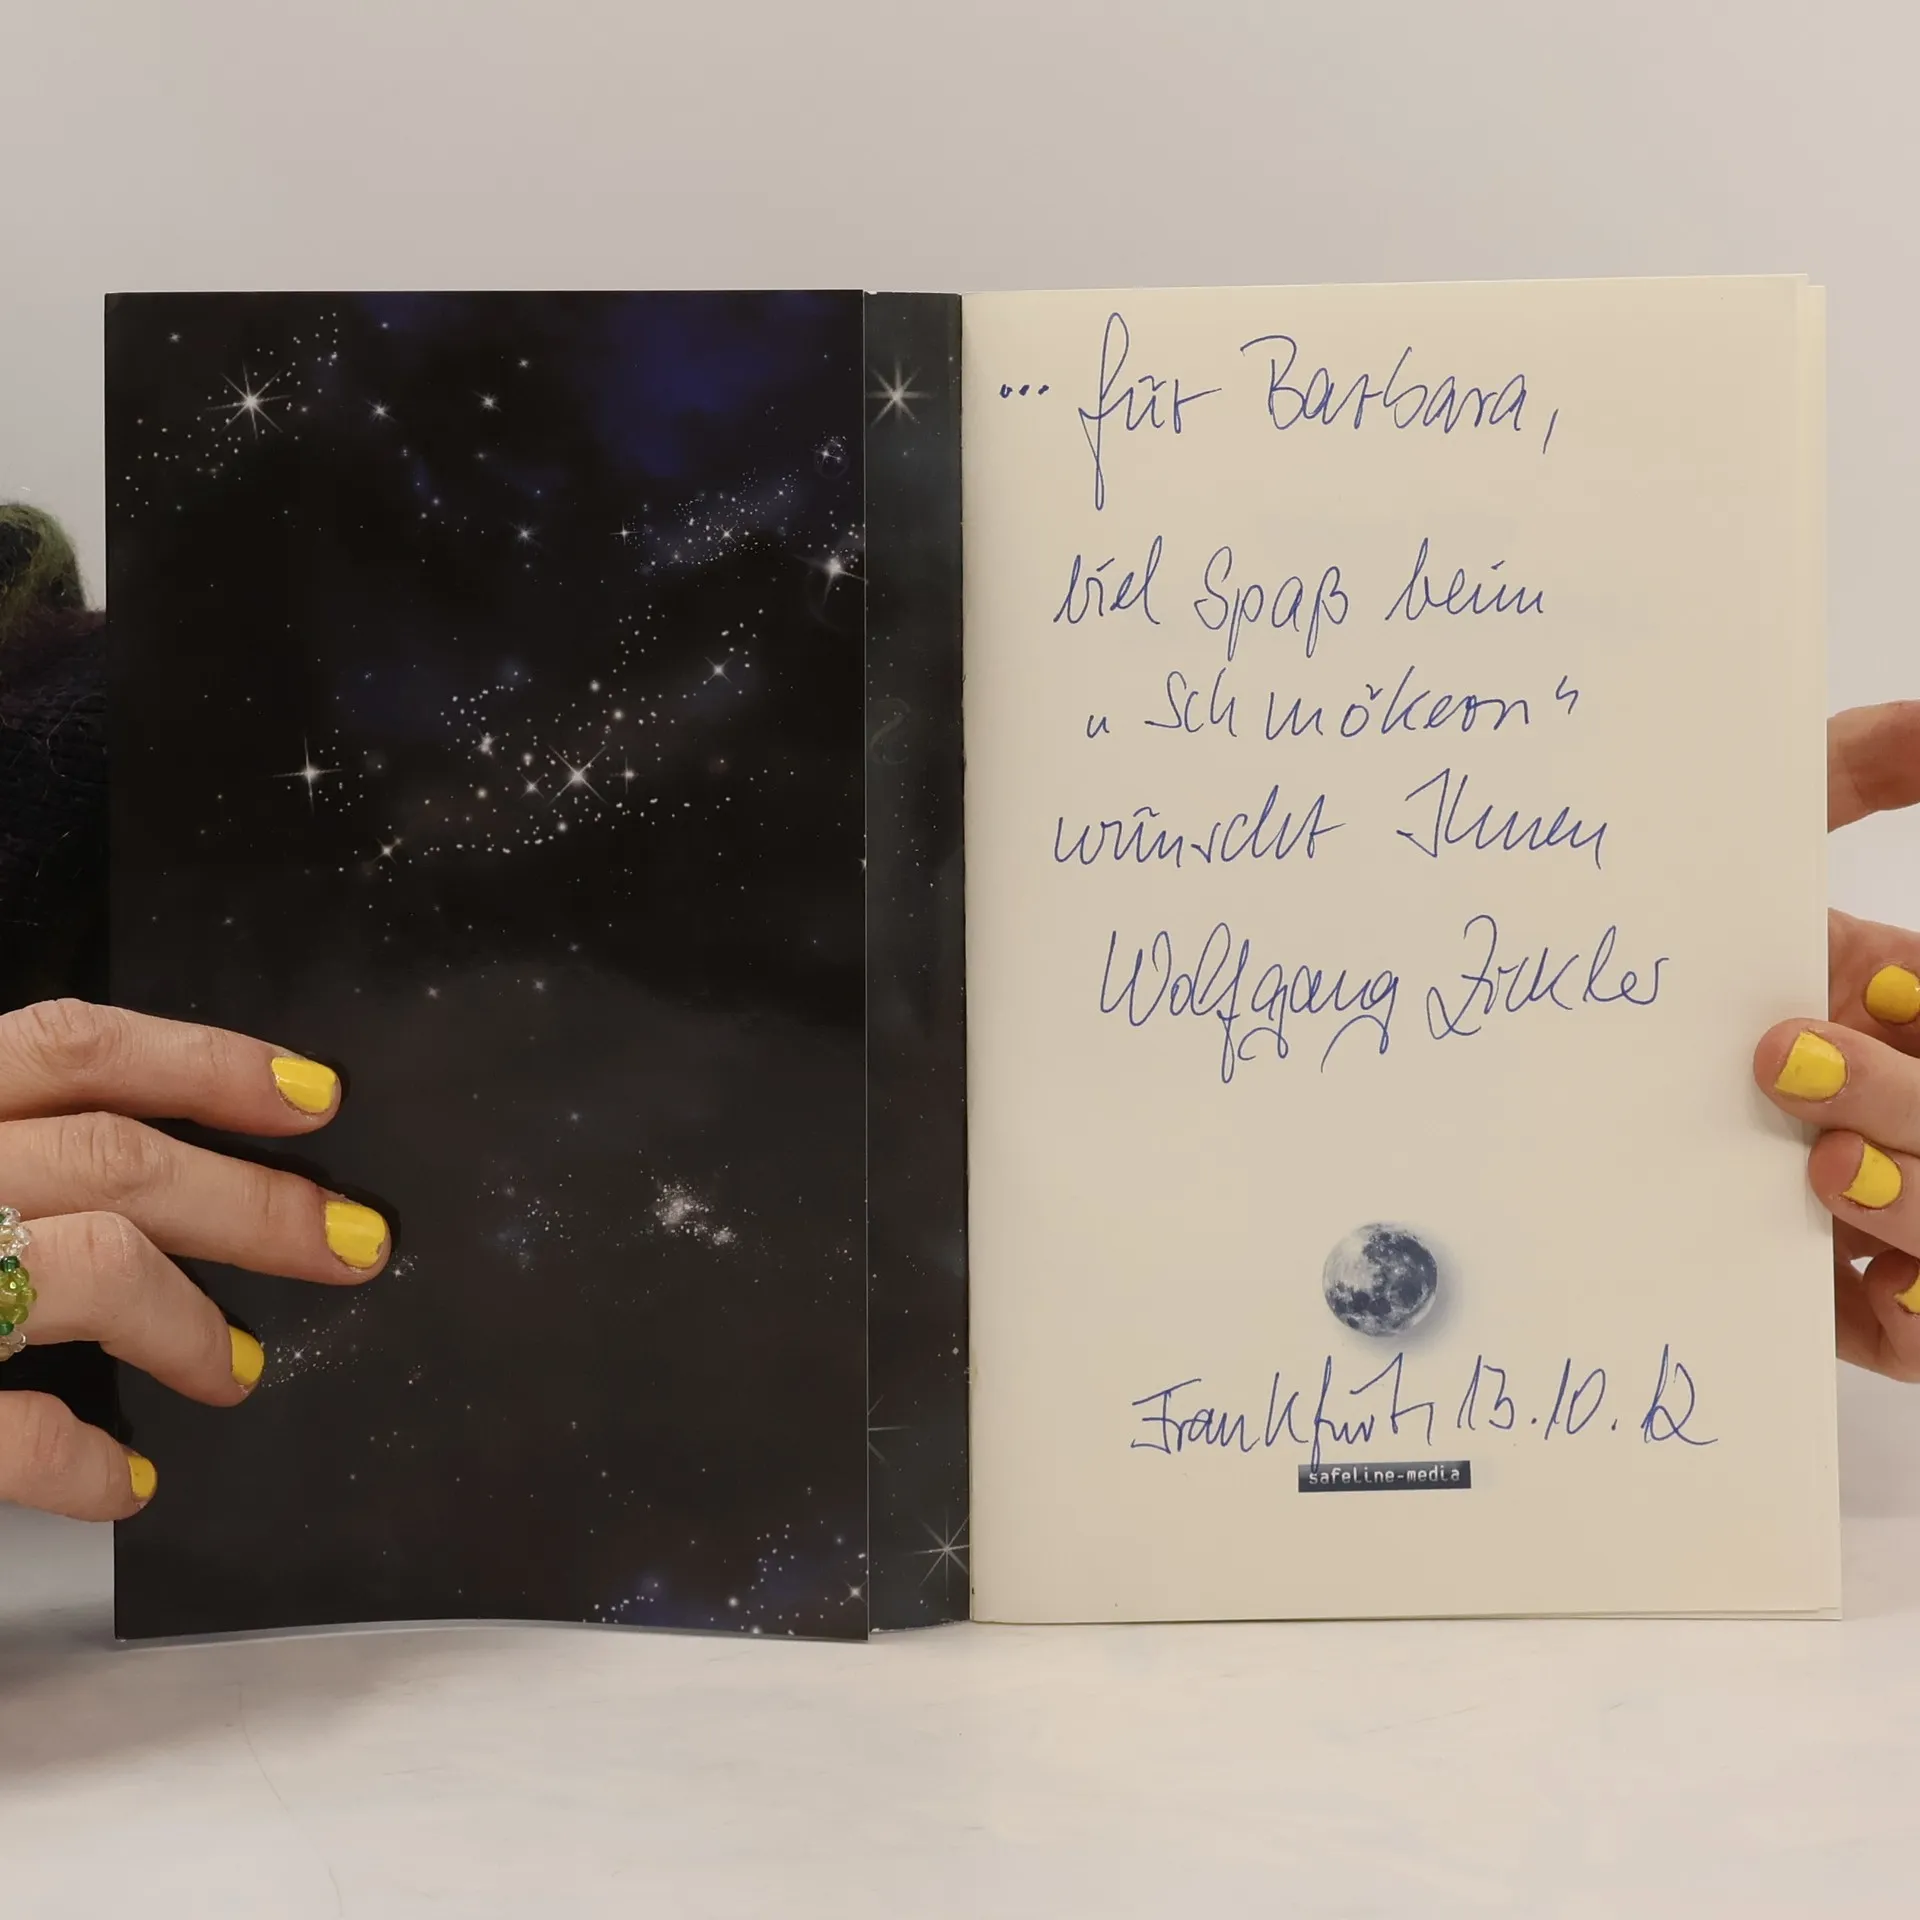 ... für Barbara,
viel Spaß beim
„Schmökern“
wünscht Ihnen
Wolfgang Zickler
Frankfurt, 13.10.12
safeline-media